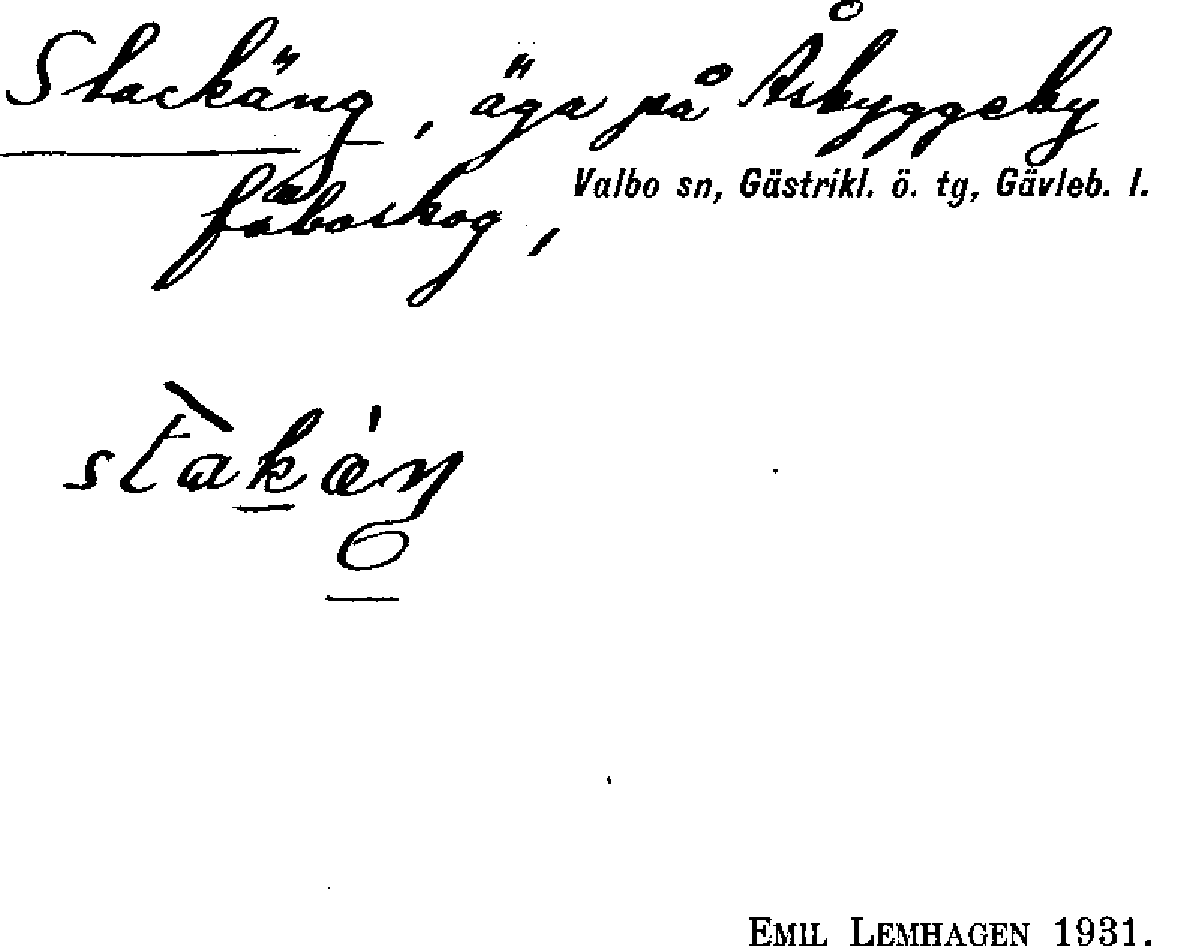 Stackäng, äga på Åsbyggeby
Valbo sn, Gästrikl. ö. tg, Gävleb. l.
fäboskog,
EMIL LEMHAGEN 1931.